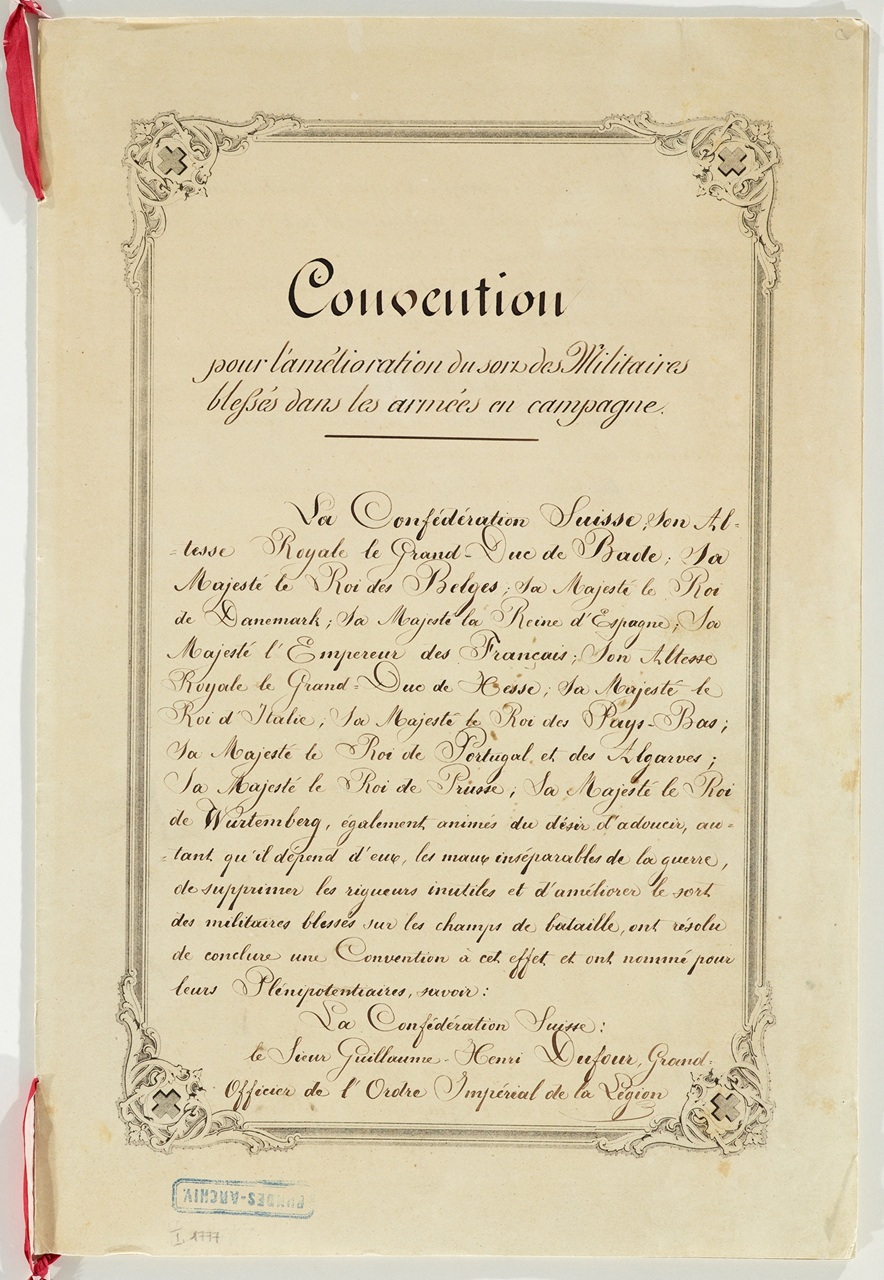 Convention
pour l'amélioration du sort des Militaires
blessés dans les armées en campagne.
La Confédération Suisse; Son Al-
-tesse Royale le Grand-Duc de Bade; Sa
Majesté le Roi des Belges; Sa Majesté le Roi
de Danemark; Sa Majesté la Reine d'Espagne; Sa
Majesté l'Empereur des Français; Son Altesse
Royale le Grand-Duc de Hesse; Sa Majesté le
Roi d'Italie; Sa Majesté le Roi des Pays-Bas;
Sa Majesté le Roi de Portugal et des Algarves;
Sa Majesté le Roi de Prusse, Sa Majesté le Roi
de Wurtemberg, également animés du désir d'adoucir, au-
-tant qu'il dépend d'eux, les maux inséparables de la guerre,
de supprimer les rigueurs inutiles et d'améliorer le sort
des militaires blessés sur les champs de bataille, ont résolu
de conclure une Convention à cet effet et ont nommé pour
leurs Plénipotentiaires, savoir:
La Confédération Suisse:
le Sieur Guillaume-Henri Dufour, Grand-
Officier de l'Ordre Impérial de la Légion
BUNDES-ARCHIV.
I, 1777